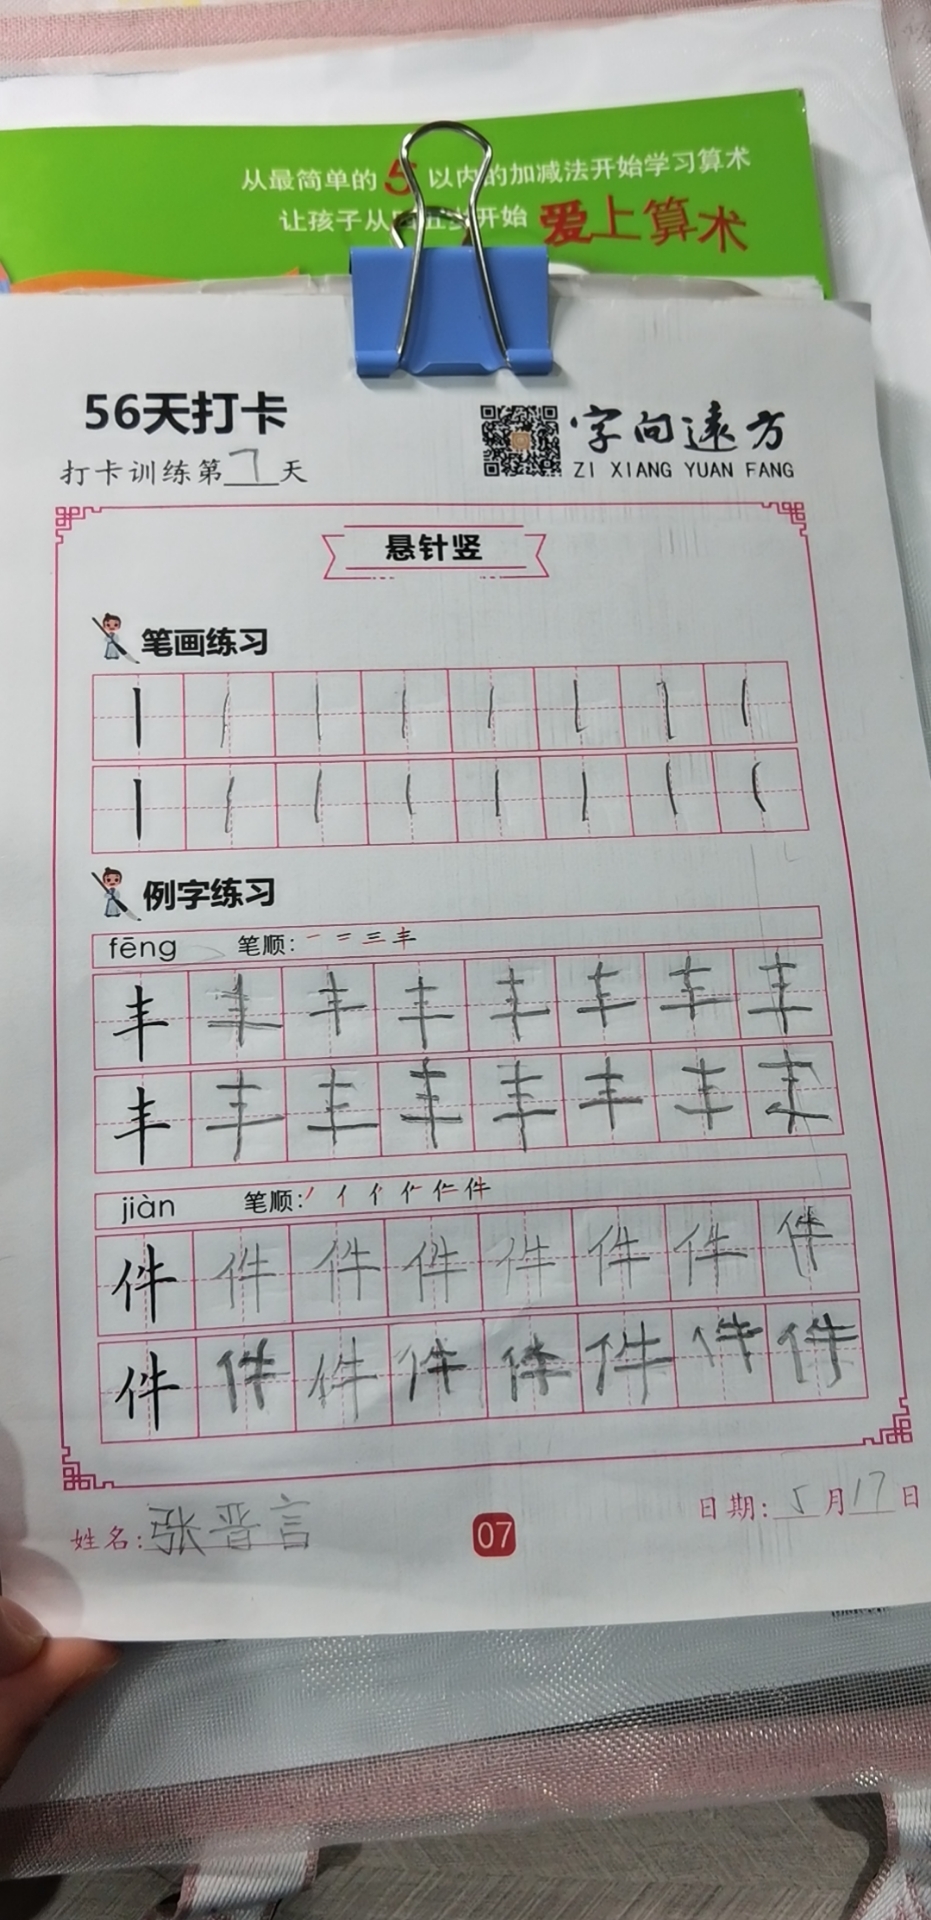 从最简单的5以内的加减法开始学习算术
让孩子从 开始 爱上算术
56天打卡
字向远方
打卡训练第7天
ZI XIANG YUAN FANG
悬针竖
笔画练习
例字练习
fēng 笔顺: 一 二 三 丰
丰 丰 丰 丰 丰 丰 丰 丰
丰 丰 丰 丰 丰 丰 丰 丰
jiàn 笔顺: 丿 亻 件
件 件 件 件 件 件 件 件
件 件 件 件 件 件 件 件
姓名:张晋言
07
日期:5月17日